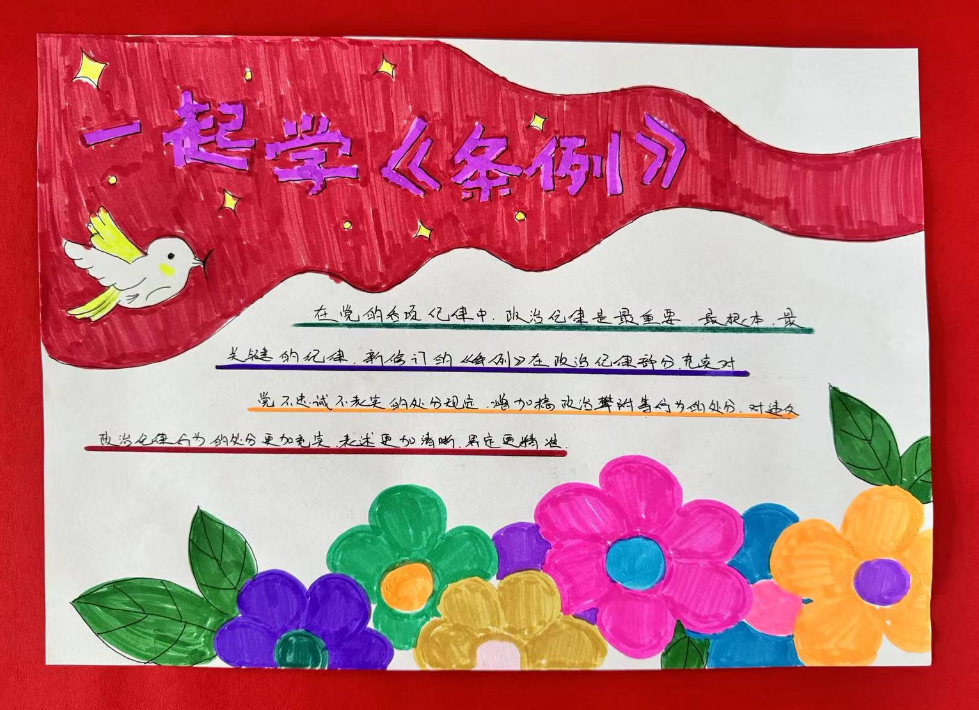 一起学《条例》
在党的各项纪律中,政治纪律是最重要、最根本、最
关键的纪律.新修订的《条例》在政治纪律部分,充实对
党不忠诚不老实的处分规定,增加搞政治攀附等行为的处分,对违反
政治纪律行为的处分更加充实、表述更加清晰、界定更精准.